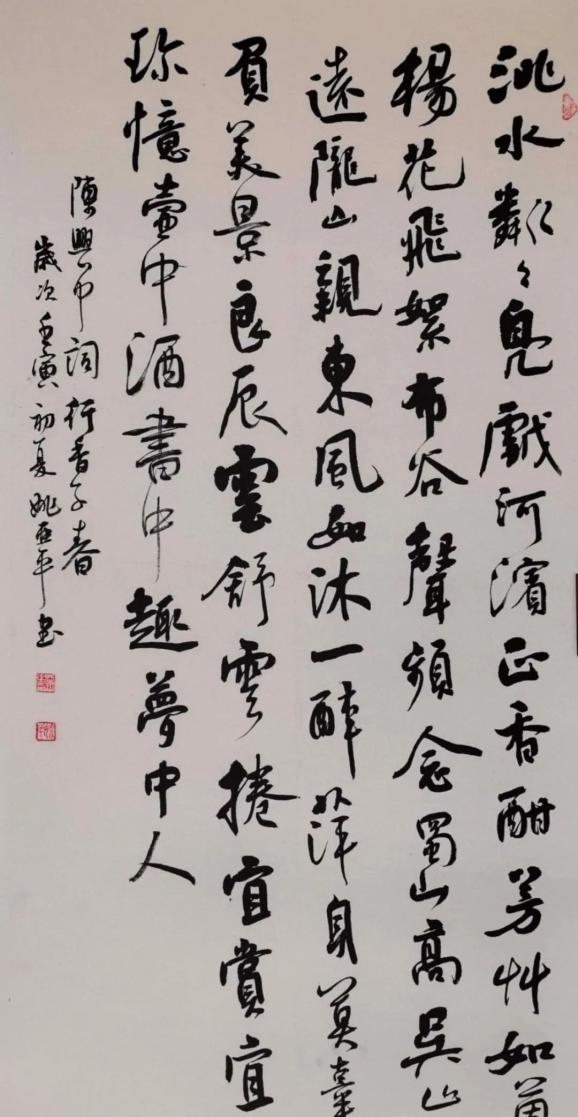 洮水粼々鳧戲河濱正香酣芳艸如茵
楊花飛絮布谷聲頻念蜀山高吳山
遠隴山親東風如沐一醉渾身莫辜
負美景良辰雲舒雲捲宜賞宜
珎憶壷中酒書中趣夢中人
陳興中词行香子春
歲次壬寅初夏姚亜平书